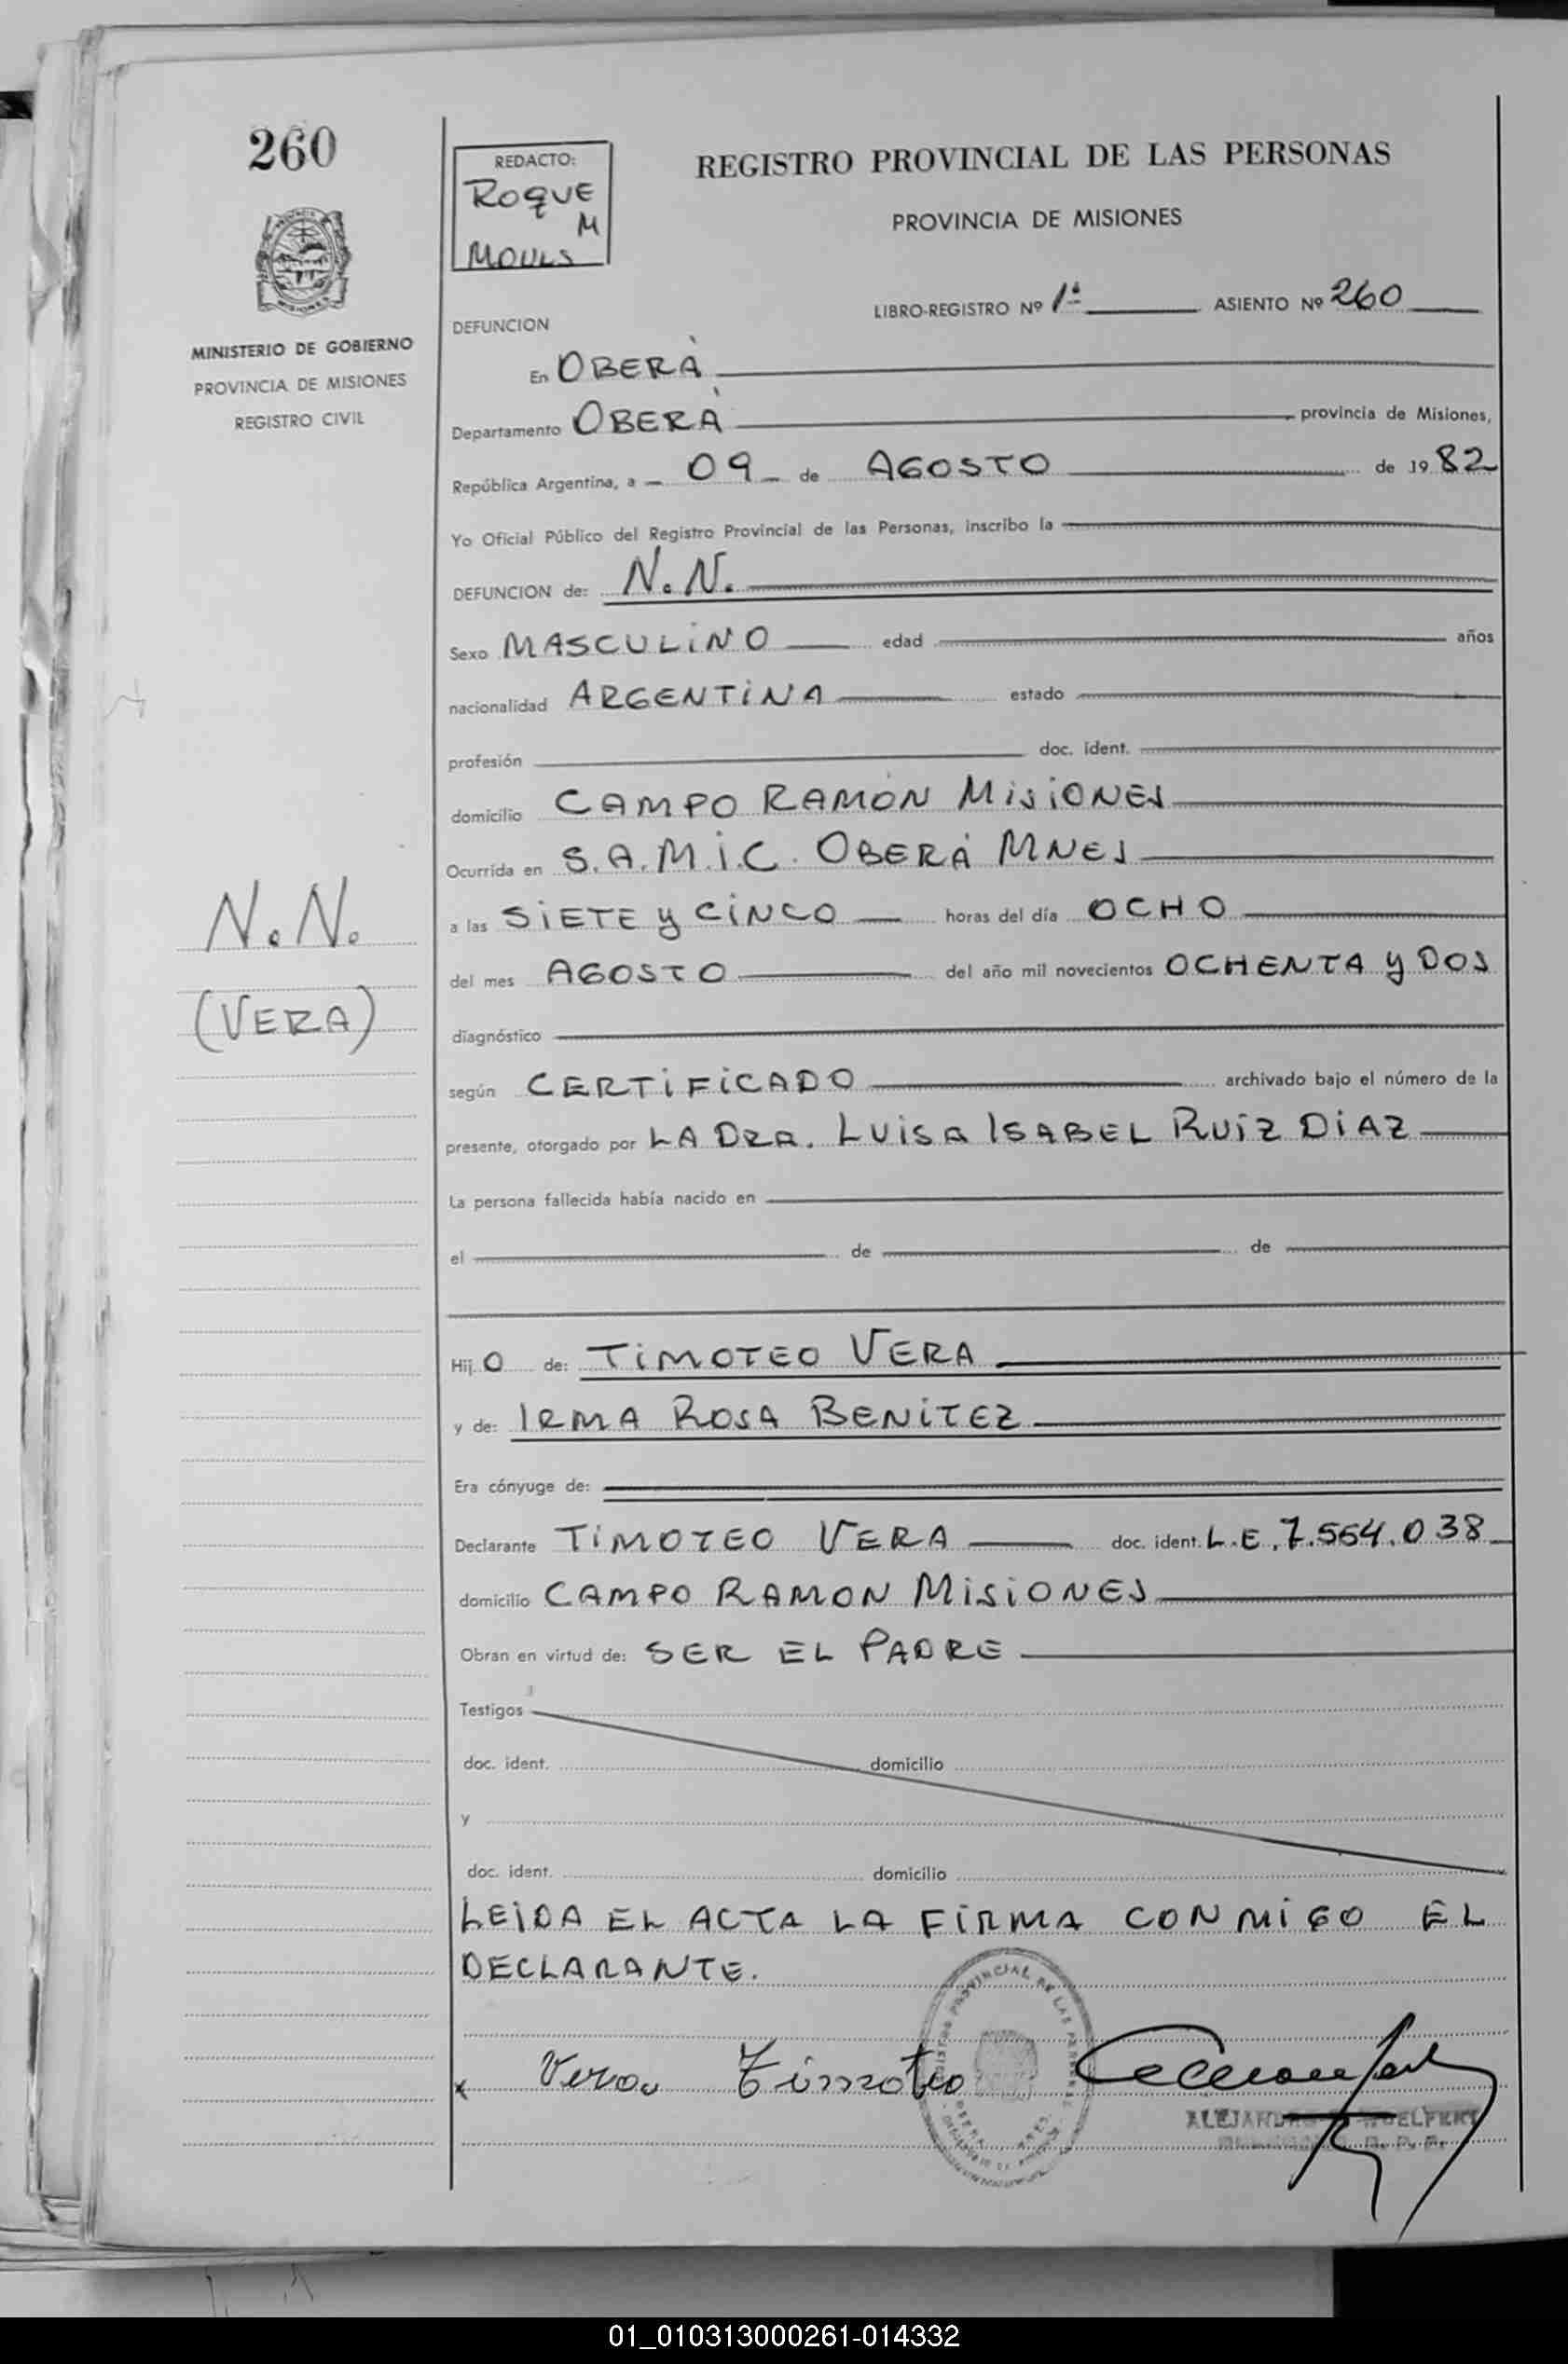 260
MINISTERIO DE GOBIERNO
PROVINCIA DE MISIONES
REGISTRO CIVIL
N.N.
(VERA)
REDACTO:
ROQUE
M
REGISTRO PROVINCIAL DE LAS PERSONAS
PROVINCIA DE MISIONES
LIBRO-REGISTRO Nº 1ª ASIENTO Nº 260
DEFUNCION
En OBERÁ
Departamento OBERÁ provincia de Misiones,
República Argentina, a 09 de AGOSTO de 1982
Yo Oficial Público del Registro Provincial de las Personas, inscribo la
DEFUNCION de: N.N.
Sexo MASCULINO edad años
nacionalidad ARGENTINA estado
profesión doc. ident.
domicilio CAMPO RAMÓN MISIONES
Ocurrida en S.A.M.I.C. OBERÁ MNES
a las SIETE y CINCO horas del día OCHO
del mes AGOSTO del año mil novecientos OCHENTA y DOS
diagnóstico
según CERTIFICADO archivado bajo el número de la
presente, otorgado por LA DRA. LUISA ISABEL RUIZ DIAZ
La persona fallecida había nacido en
el de de
Hij O de: TIMOTEO VERA
y de: IRMA ROSA BENITEZ
Era cónyuge de:
Declarante TIMOTEO VERA doc. ident. L.E. 7.564.038
domicilio CAMPO RAMON MISIONES
Obran en virtud de: SER EL PADRE
Testigos
doc. ident. domicilio
y
doc. ident. domicilio
LEIDA EL ACTA LA FIRMA CONMIGO EL
DECLARANTE.
x Vera Timoteo
01_010313000261-014332